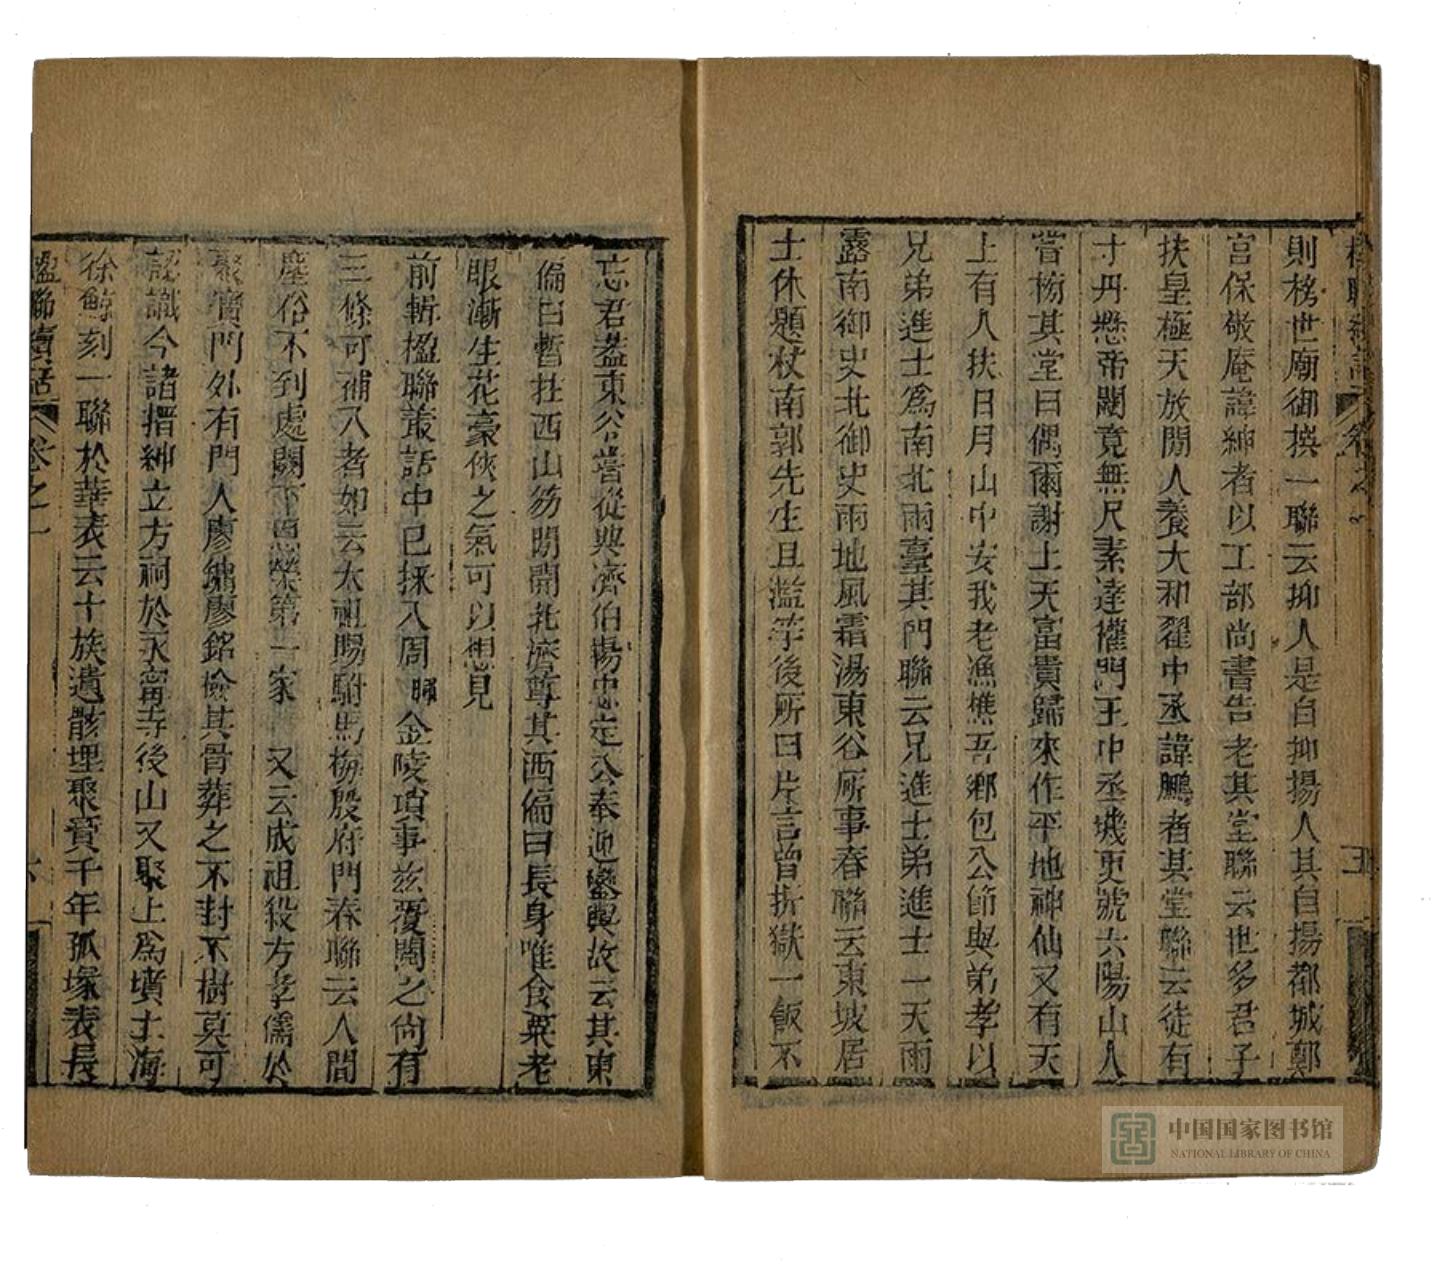 楹聯續話 卷之一 五
則楞世廟御撰一聯云抑人是自抑揚人其自揚都城鄭
宮保敬庵諱紳者以工部尚書告老其堂聯云世多君子
扶皇極天放閒人養大和翟中丞諱鵬者其堂聯云徒有
寸丹懸帝闕竟無尺素達權門王中丞璣更號六陽山人
嘗榜其堂曰偶爾謝上天富貴歸來作平地神仙又有天
上有人扶日月山中安我老漁樵吾鄉包公節與弟孝以
兄弟進士爲南北兩臺其門聯云兄進士弟進士一天雨
露南御史北御史兩地風霜湯東谷㕔事春聯云東坡居
士休題杖南郭先生且濫竽後所曰片言曾折獄一飯不
忘君蓋東谷嘗從興濟伯楊忠定公奉迎鑾輿故云其東
偏曰暫拄西山笏閒開北海尊其西偏曰長身唯食粟老
眼漸生花豪俠之氣可以想見
前輯楹聯叢話中已採入周暉金陵瑣事玆覆閱之尚有
三條可補入者如云太祖賜駙馬梅殷府門春聯云人間
塵俗不到處闕下恩榮第一家 又云成祖殺方孝儒於
聚寶門外有門人廖鏞廖銘檢其骨葬之不封不樹莫可
認識今諸搢紳立方祠於永甯寺後山又聚土爲墳土海
徐鯨刻一聯於華表云十族遺骸埋聚寶千年孤塚表長
楹聯續話 卷之一 六